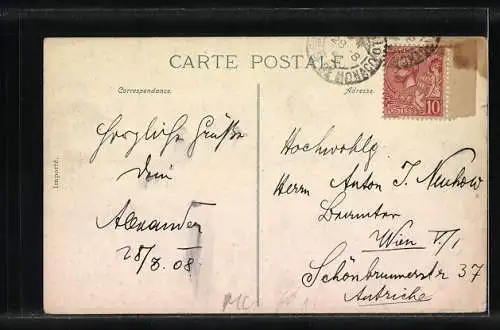 CARTE POSTALE
Correspondance.
Adresse.
POSTES
10
Importé.
Herzliche Grüße
Dein
Alexander
28/8. 08.
Hochwohlg
Herrn Anton J.
Wien V/1
Schönbrunnerstr 37
Autriche